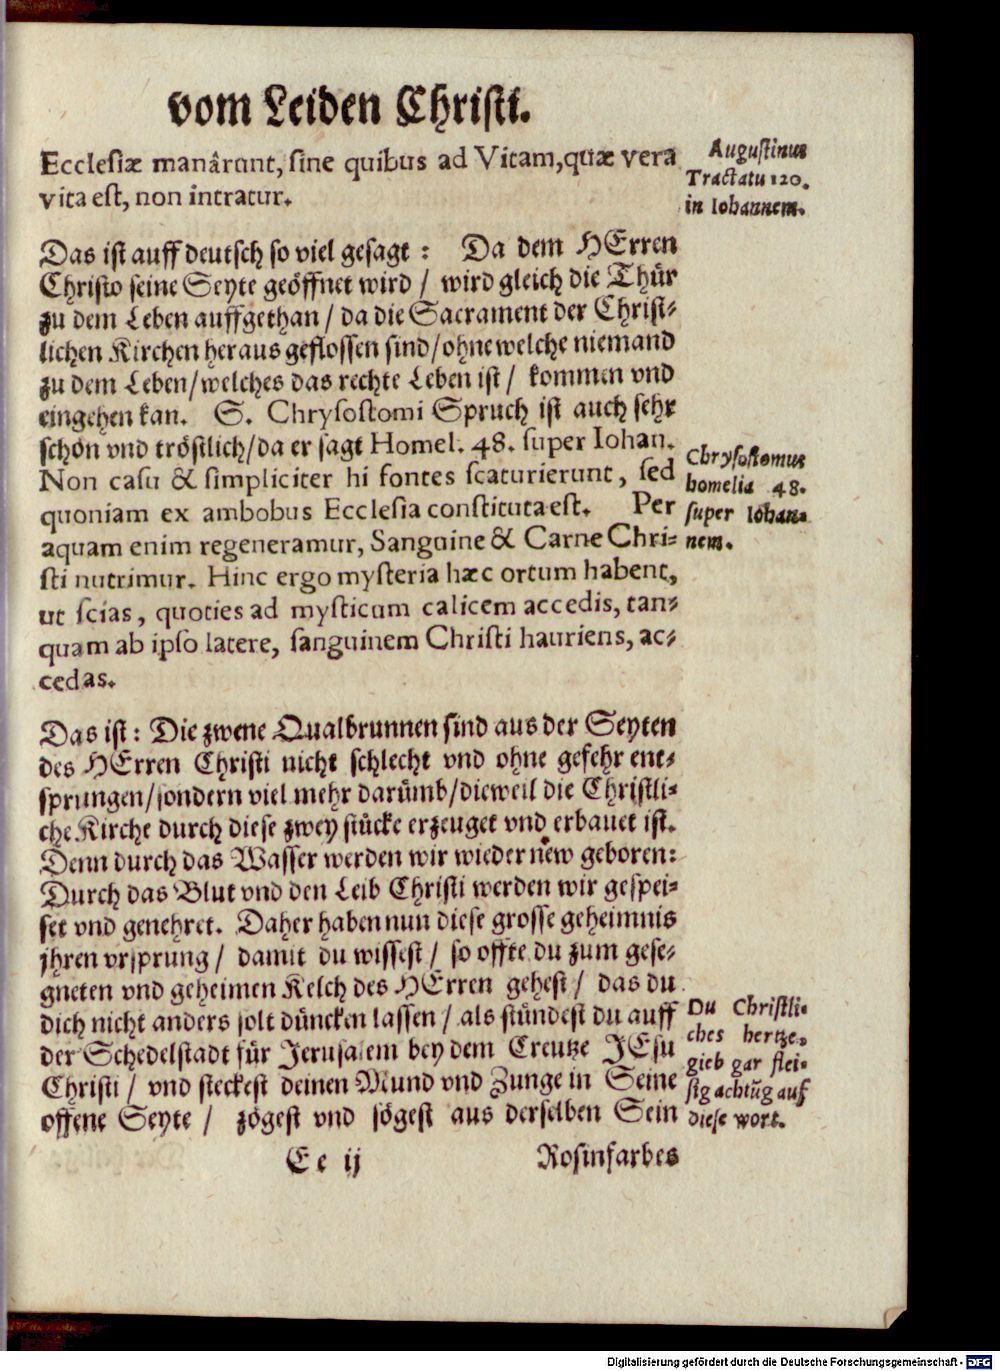 vom Leiden Christi.
Ecclesiæ manârunt, sine quibus ad Vitam, quæ vera
vita est, non intratur.
Augustinus
Tractatu 120.
in Iohannem.
Das ist auff deutsch so viel gesagt: Da dem HErren
Christo seine Seyte geöffnet wird / wird gleich die Thür
zu dem Leben auffgethan / da die Sacrament der Christ-
lichen Kirchen heraus geflossen sind / ohne welche niemand
zu dem Leben / welches das rechte Leben ist / kommen vnd
eingehen kan. S. Chrysostomi Spruch ist auch sehr
schön vnd tröstlich / da er sagt Homel. 48. super Iohan.
Non casu & simpliciter hi fontes scaturierunt, sed
quoniam ex ambobus Ecclesia constituta est. Per
aquam enim regeneramur, Sanguine & Carne Chri-
sti nutrimur. Hinc ergo mysteria hæc ortum habent,
ut scias, quoties ad mysticum calicem accedis, tan-
quam ab ipso latere, sanguinem Christi hauriens, ac-
cedas.
Chrysostomus
homelia 48.
super Iohan-
nem.
Das ist: Die zwene Qualbrunnen sind aus der Seyten
des HErren Christi nicht schlecht vnd ohne gefehr ent-
sprungen / sondern viel mehr darümb / dieweil die Christli-
che Kirche durch diese zwey stücke erzeuget vnd erbauet ist.
Denn durch das Wasser werden wir wieder new geboren:
Durch das Blut vnd den Leib Christi werden wir gespei-
set vnd genehret. Daher haben nun diese grosse geheimnis
jhren vrsprung / damit du wissest / so offte du zum gese-
gneten vnd geheimen Kelch des HErren gehest / das du
dich nicht anders solt düncken lassen / als stündest du auff
der Schedelstadt für Jerusalem bey dem Creutze JEsu
Christi / vnd steckest deinen Mund vnd Zunge in Seine
offene Seyte / zögest vnd sögest aus derselben Sein
Du Christli-
ches hertze,
gieb gar flei-
sig achtũg auf
diese wort.
Ee ij
Rosinfarbes
Digitalisierung gefördert durch die Deutsche Forschungsgemeinschaft - DFG